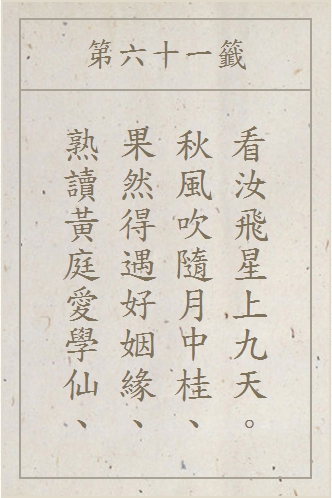 第六十一籤
熟讀黃庭愛學仙、
果然得遇好姻緣、
秋風吹隨月中桂、
看汝飛星上九天。